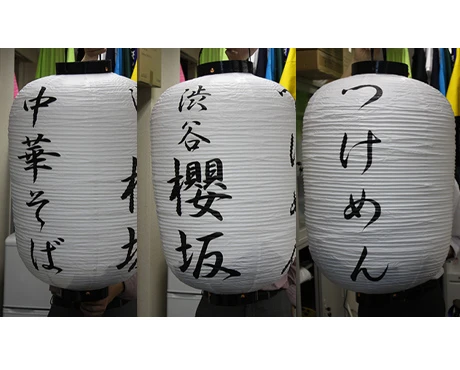 中華そば
渋谷
櫻坂
つけめん